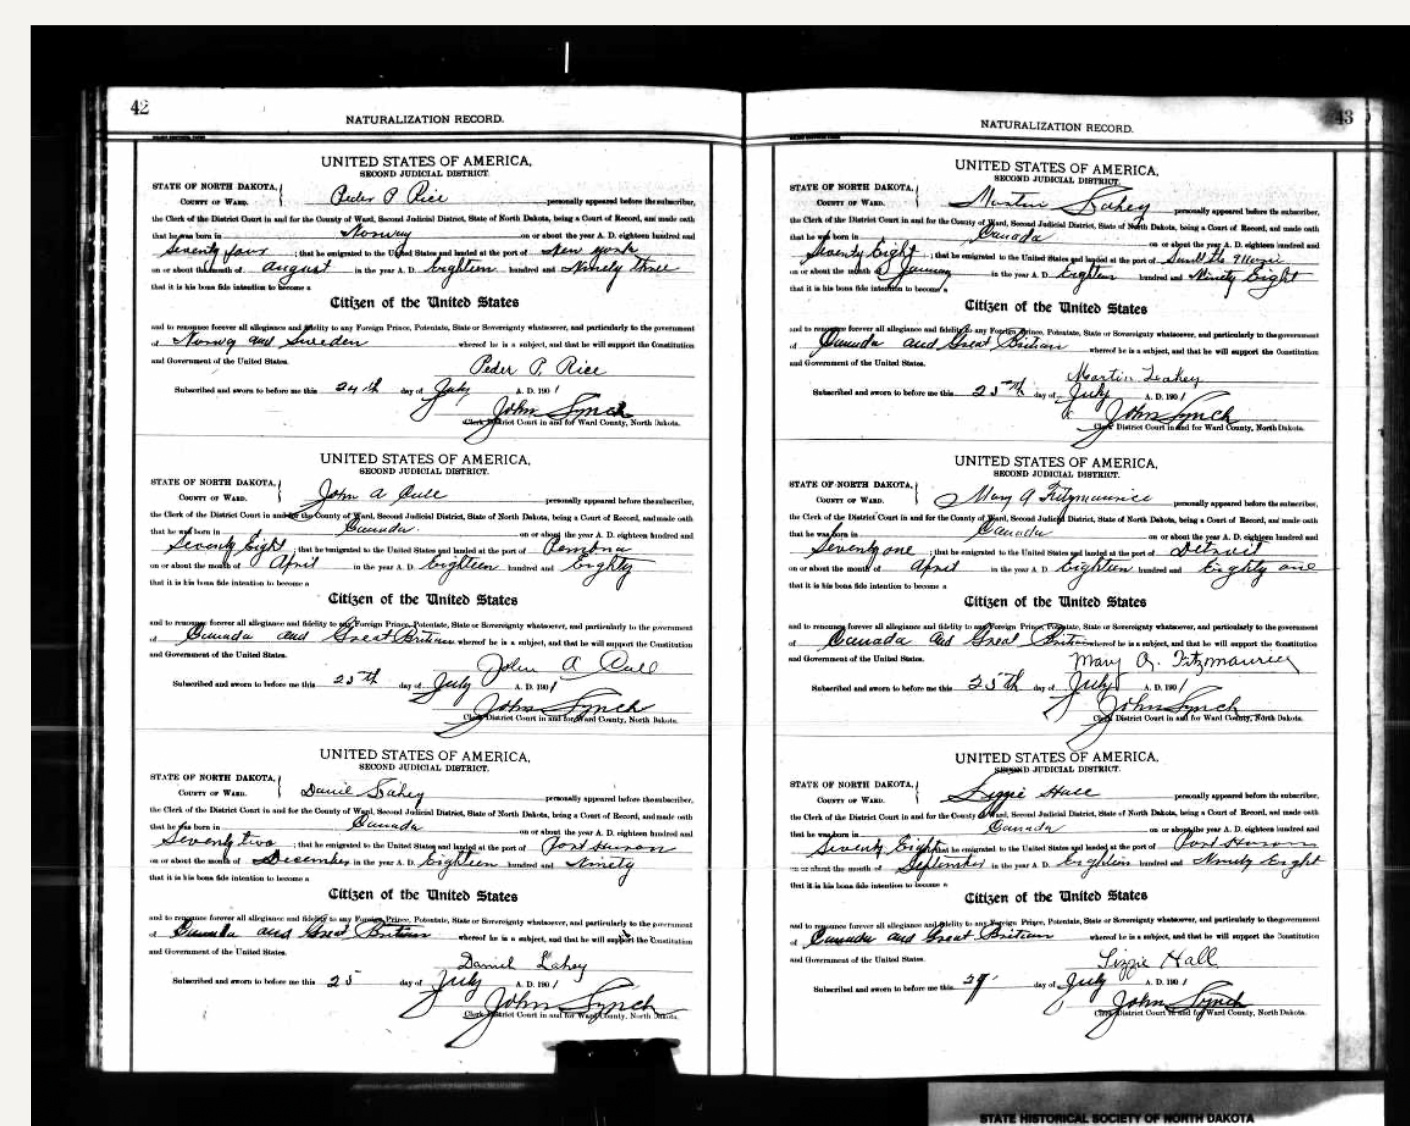 42
NATURALIZATION RECORD.
UNITED STATES OF AMERICA,
SECOND JUDICIAL DISTRICT.
STATE OF NORTH DAKOTA,
COUNTY OF WARD.
Peder P Rice personally appeared before the subscriber,
the Clerk of the District Court in and for the County of Ward, Second Judicial District, State of North Dakota, being a Court of Record, and made oath
that he was born in Norway on or about the year A. D. eighteen hundred and
Seventy four ; that he emigrated to the United States and landed at the port of New York
on or about the month of August in the year A. D. Eighteen hundred and Ninety three
that it is his bona fide intention to become a
Citizen of the United States
and to renounce forever all allegiance and fidelity to any Foreign Prince, Potentate, State or Sovereignty whatsoever, and particularly to the government
of Norway and Sweden whereof he is a subject, and that he will support the Constitution
and Government of the United States.
Peder P. Rice
Subscribed and sworn to before me this 24th day of July A. D. 1901
John Lynch
Clerk District Court in and for Ward County, North Dakota.
UNITED STATES OF AMERICA,
SECOND JUDICIAL DISTRICT.
STATE OF NORTH DAKOTA,
COUNTY OF WARD.
John A Cull personally appeared before the subscriber,
the Clerk of the District Court in and for the County of Ward, Second Judicial District, State of North Dakota, being a Court of Record, and made oath
that he was born in Canada on or about the year A. D. eighteen hundred and
Seventy Eight ; that he emigrated to the United States and landed at the port of Pembina
on or about the month of April in the year A. D. Eighteen hundred and Eighty
that it is his bona fide intention to become a
Citizen of the United States
and to renounce forever all allegiance and fidelity to any Foreign Prince, Potentate, State or Sovereignty whatsoever, and particularly to the government
of Canada and Great Britian whereof he is a subject, and that he will support the Constitution
and Government of the United States.
John A Cull
Subscribed and sworn to before me this 25th day of July A. D. 1901
John Lynch
Clerk District Court in and for Ward County, North Dakota.
UNITED STATES OF AMERICA,
SECOND JUDICIAL DISTRICT.
STATE OF NORTH DAKOTA,
COUNTY OF WARD.
Daniel Lahey personally appeared before the subscriber,
the Clerk of the District Court in and for the County of Ward, Second Judicial District, State of North Dakota, being a Court of Record, and made oath
that he was born in Canada on or about the year A. D. eighteen hundred and
Seventy two ; that he emigrated to the United States and landed at the port of Port Huron
on or about the month of December in the year A. D. Eighteen hundred and Ninety
that it is his bona fide intention to become a
Citizen of the United States
and to renounce forever all allegiance and fidelity to any Foreign Prince, Potentate, State or Sovereignty whatsoever, and particularly to the government
of Canada and Great Britian whereof he is a subject, and that he will support the Constitution
and Government of the United States.
Daniel Lahey
Subscribed and sworn to before me this 25 day of July A. D. 1901
John Lynch
Clerk District Court in and for Ward County, North Dakota.
43
NATURALIZATION RECORD.
UNITED STATES OF AMERICA,
SECOND JUDICIAL DISTRICT.
STATE OF NORTH DAKOTA,
COUNTY OF WARD.
Martin Lahey personally appeared before the subscriber,
the Clerk of the District Court in and for the County of Ward, Second Judicial District, State of North Dakota, being a Court of Record, and made oath
that he was born in Canada on or about the year A. D. eighteen hundred and
Seventy Eight ; that he emigrated to the United States and landed at the port of
on or about the month of January in the year A. D. Eighteen hundred and Ninety Eight
that it is his bona fide intention to become a
Citizen of the United States
and to renounce forever all allegiance and fidelity to any Foreign Prince, Potentate, State or Sovereignty whatsoever, and particularly to the government
of Canada and Great Britian whereof he is a subject, and that he will support the Constitution
and Government of the United States.
Martin Leahey
Subscribed and sworn to before me this 25th day of July A. D. 1901
John Lynch
Clerk District Court in and for Ward County, North Dakota.
UNITED STATES OF AMERICA,
SECOND JUDICIAL DISTRICT.
STATE OF NORTH DAKOTA,
COUNTY OF WARD.
Mary A Fitzmaurice personally appeared before the subscriber,
the Clerk of the District Court in and for the County of Ward, Second Judicial District, State of North Dakota, being a Court of Record, and made oath
that he was born in Canada on or about the year A. D. eighteen hundred and
Seventy one ; that he emigrated to the United States and landed at the port of Detroit
on or about the month of April in the year A. D. Eighteen hundred and Eighty one
that it is his bona fide intention to become a
Citizen of the United States
and to renounce forever all allegiance and fidelity to any Foreign Prince, Potentate, State or Sovereignty whatsoever, and particularly to the government
of Canada and Great Britian whereof he is a subject, and that he will support the Constitution
and Government of the United States.
Mary A. Fitzmaurice
Subscribed and sworn to before me this 25th day of July A. D. 1901
John Lynch
Clerk District Court in and for Ward County, North Dakota.
UNITED STATES OF AMERICA,
SECOND JUDICIAL DISTRICT.
STATE OF NORTH DAKOTA,
COUNTY OF WARD.
Lizzie Hall personally appeared before the subscriber,
the Clerk of the District Court in and for the County of Ward, Second Judicial District, State of North Dakota, being a Court of Record, and made oath
that he was born in Canada on or about the year A. D. eighteen hundred and
Seventy Eight that he emigrated to the United States and landed at the port of Port Huron
on or about the month of September in the year A. D. Eighteen hundred and Ninety Eight
that it is his bona fide intention to become a
Citizen of the United States
and to renounce forever all allegiance and fidelity to any Foreign Prince, Potentate, State or Sovereignty whatsoever, and particularly to the government
of Canada and Great Britian whereof he is a subject, and that he will support the Constitution
and Government of the United States.
Lizzie Hall
Subscribed and sworn to before me this 29 day of July A. D. 1901
John Lynch
Clerk District Court in and for Ward County, North Dakota.
STATE HISTORICAL SOCIETY OF NORTH DAKOTA